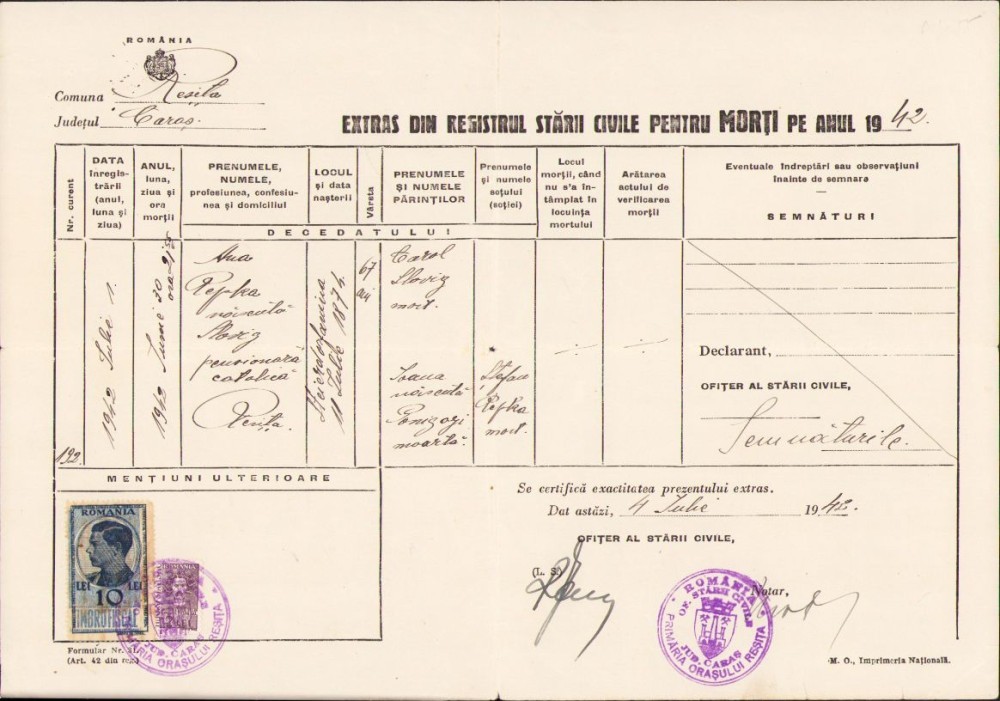 ROMÂNIA
Comuna Reșița
Județul Caraș
EXTRAS DIN REGISTRUL STĂRII CIVILE PENTRU MORȚI PE ANUL 1942.
Nr. curent
DATA înregistrării (anul, luna și ziua)
ANUL, luna, ziua și ora morții
PRENUMELE, NUMELE, profesiunea, confesiunea și domiciliul
LOCUL și data nașterii
Vârsta
PRENUMELE ȘI NUMELE PĂRINȚILOR
Prenumele și numele soțului (soției)
Locul morții, când nu s'a întâmplat în locuința mortului
Arătarea actului de verificarea morții
Eventuale îndreptări sau observațiuni înainte de semnare
SEMNĂTURI
DECEDATULUI
192.
1942 Iulie 1.
1942 Iunie 30
Ana
Repka
născută
Sloviz
pensionară
catolică
Reșița.
11 Iulie 1874.
67
ani
Carol
Sloviz
mort.
Ioana
născută
moartă.
Ștefan
Repka
mort.
Declarant,
OFIȚER AL STĂRII CIVILE,
Semnăturile.
MENȚIUNI ULTERIOARE
Se certifică exactitatea prezentului extras.
Dat astăzi, 4 Iulie 1942.
OFIȚER AL STĂRII CIVILE,
(L. S.)
Notar,
ROMÂNIA
LEI 10 LEI
TIMBRU FISCAL
ROMANIA
JUD. CARAȘ
PRIMĂRIA ORAȘULUI REȘIȚA
ROMÂNIA
OF. STĂRII CIVILE
JUD. CARAȘ
PRIMĂRIA ORAȘULUI REȘIȚA
Formular Nr.
(Art. 42 din reg.)
M. O., Imprimeria Națională.